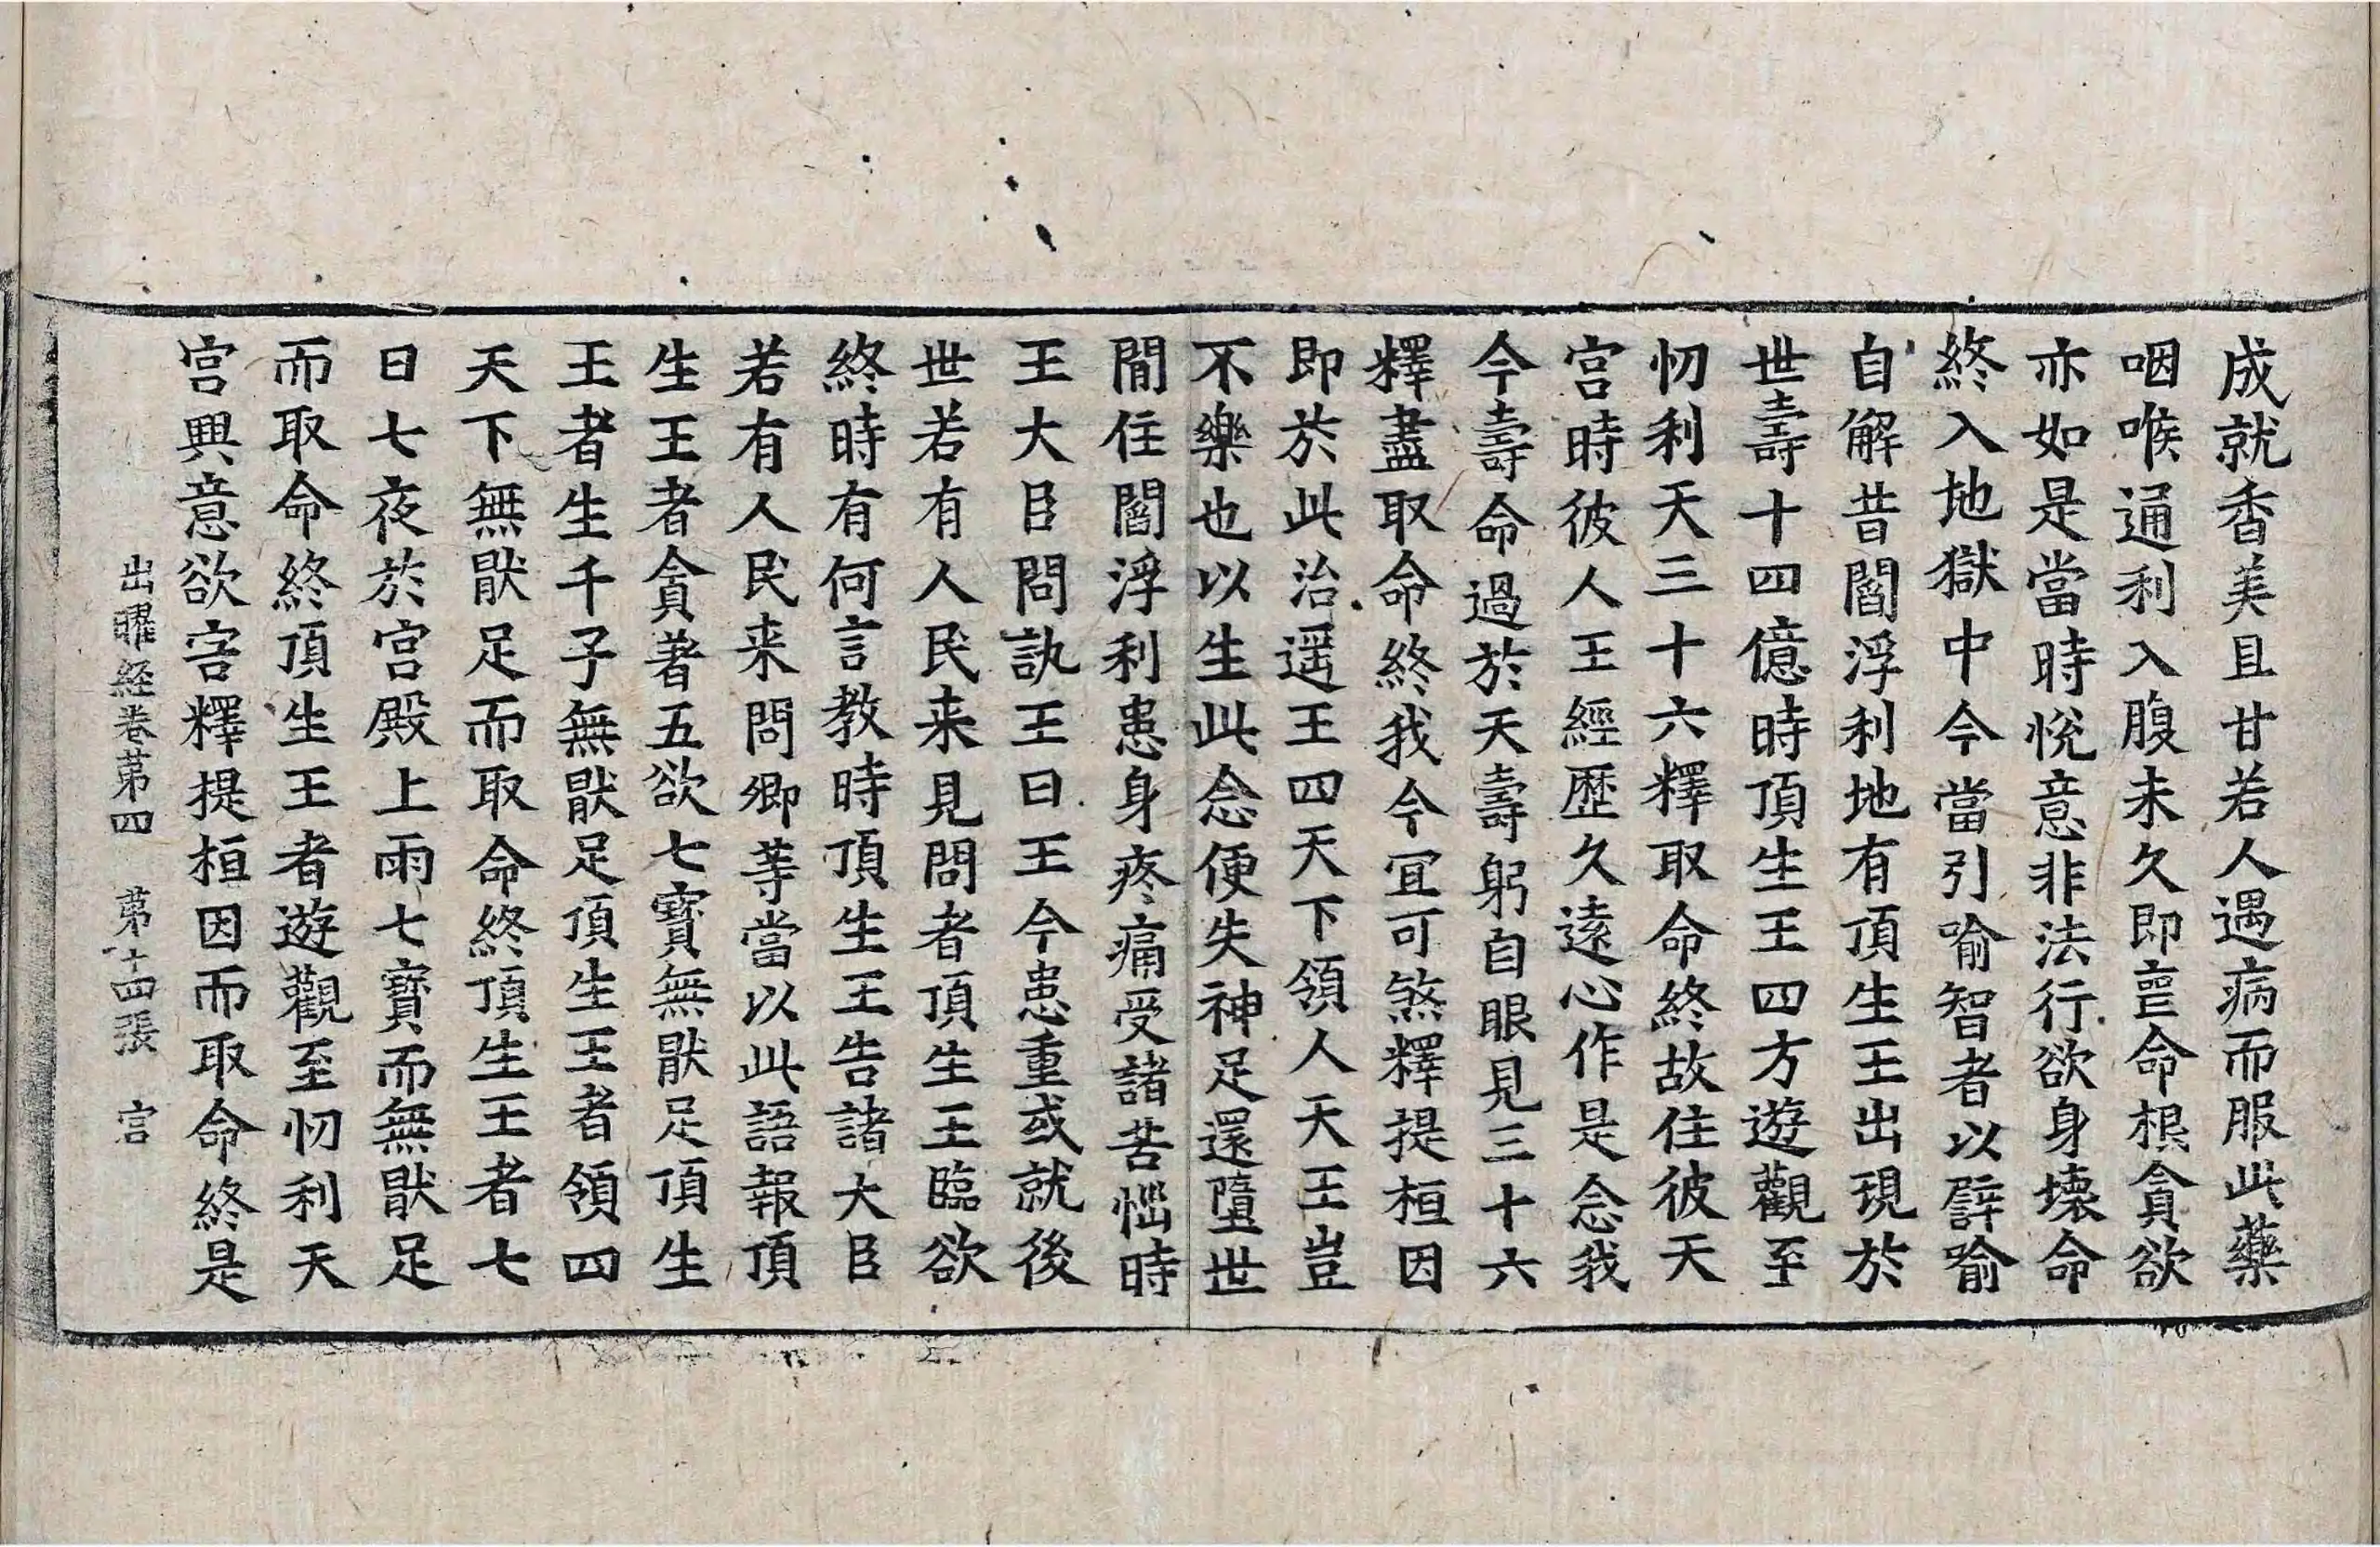 成就香美且甘若人遇病而服此藥
咽喉通利入腹未久即喪命根貪欲
亦如是當時悅意非法行欲身壞命
終入地獄中今當引喻智者以譬喻
自解昔閻浮利地有頂生王出現於
世壽十四億時頂生王四方遊觀至
忉利天三十六釋取命終故住彼天
宮時彼人王經歷久遠心作是念我
今壽命過於天壽躬自眼見三十六
釋盡取命終我今冝可煞釋提桓因
即於此治遥王四天下領人天王豈
不樂也以生此念便失神足還墮世
閒住閻浮利患身疼痛受諸苦惱時
王大臣問訊王曰王今患重或就後
世若有人民来見問者頂生王臨欲
終時有何言教時頂生王告諸大臣
若有人民来問卿等當以此語報頂
生王者貪著五欲七寶無猒足頂生
王者生千子無猒足頂生王者領四
天下無猒足而取命終頂生王者七
日七夜於宮殿上雨七寶而無猒足
而取命終頂生王者遊觀至忉利天
宮興意欲害釋提桓因而取命終是
出曜経卷苐四　苐十四張　宫